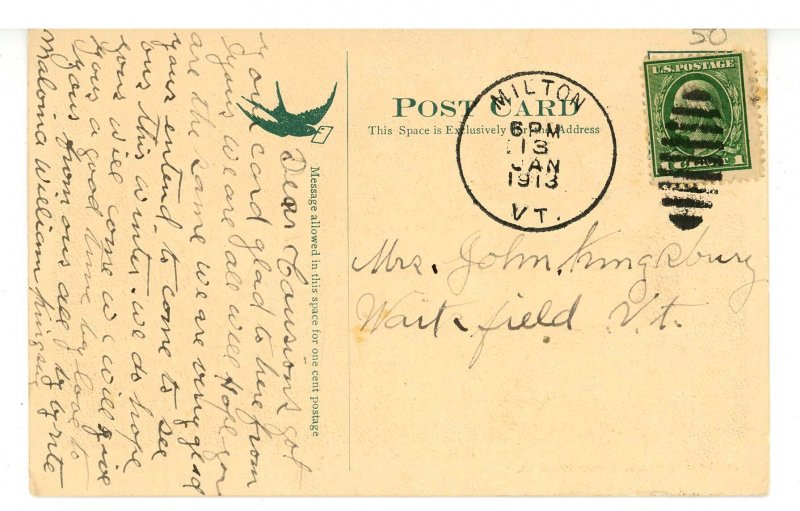 50
POST CARD
This Space is Exclusively for the Address
MILTON
6 PM
13
JAN
1913
VT.
U.S. POSTAGE
1 CENTS 1
Mrs. John Kingsbury
Waitsfield Vt.
Message allowed in this space for one cent postage
Dear Cousions got
your card glad to here from
yous we are all will Hope you
are the same we are very glad
yous entend to come to see
ous this winter. we do hope
yous will come we will give
yous a good time by love to
yous from ous all
Malvina William